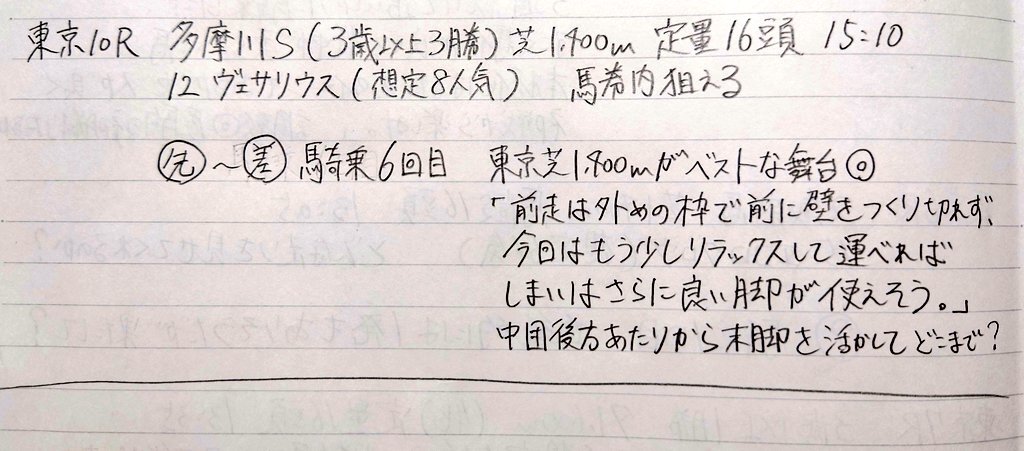 東京10R 多摩川S(3歳以上3勝)芝1,400m 定量16頭 15:10
12 ヴェサリウス(想定8人気) 馬券内狙える
先~差 騎乗6回目 東京芝1,400mがベストな舞台◎
「前走は外めの枠で前に壁をつくり切れず、
今回はもう少しリラックスして運べれば
しまいはさらに良い脚が使えそう。」
中団後方あたりから末脚を活かしてどこまで?